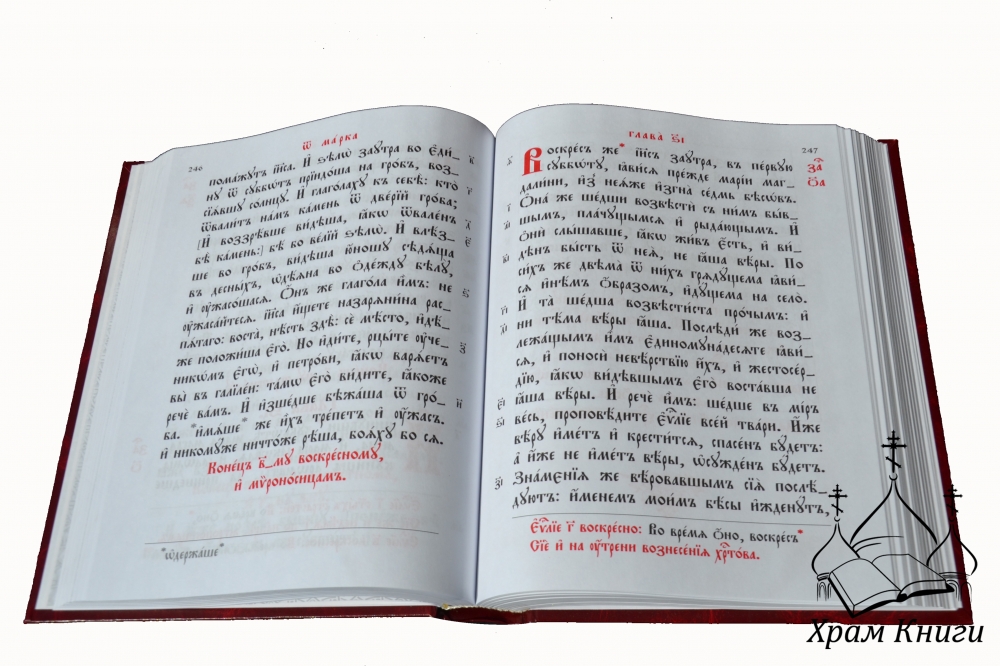 246
Ѿ ма́рка
пома́жутъ і҆и҃са. И҆ ѕѣлѡ̀ заꙋ́тра во є҆ди́_
нꙋ ѿ сꙋббѡ́тъ прїидо́ша на гро́бъ, воз_
сїѧ́вшꙋ со́лнцꙋ. И҆ глаго́лахꙋ къ себѣ̀: кто̀
ѿвали́тъ на́мъ ка́мень ѿ две́рїй гро́ба;
[И҆ воззрѣ́вше ви́дѣша, ꙗ҆́кѡ ѿвале́нъ
бѣ̀ ка́мень:] бѣ́ бо ве́лїй ѕѣлѡ̀. И҆ влѣ́з_
ше во гро́бъ, ви́дѣша ю҆́ношꙋ сѣдѧ́ща
въ десны́хъ, ѡ҆дѣ́ѧна во ѻ҆де́ждꙋ бѣ́лꙋ,
и҆ ᲂу҆жасо́шасѧ. Ѻ҆́нъ же глаго́ла и҆̀мъ: не
ᲂу҆жаса́йтесѧ. і҆и҃са и҆́щете назарѧни́на рас_
пѧ́таго: воста̀, нѣ́сть здѣ̀: сѐ мѣ́сто, и҆дѣ́_
же положи́ша є҆го̀. Но и҆ди́те, рцы́те ᲂу҆че_
никѡ́мъ є҆гѡ̀, и҆ петро́ви, ꙗ҆́кѡ варѧ́етъ
вы̀ въ галїле́и: та́мѡ є҆го̀ ви́дите, ꙗ҆́коже
речѐ ва́мъ. И҆ и҆зше́дше бѣжа́ша ѿ гро́_
ба. *и҆мѧ́ше* же и҆́хъ тре́петъ и҆ ᲂу҆́жасъ.
и҆ никомꙋ́же ничто́же рѣ́ша, боѧ́хꙋ бо сѧ.
Коне́цъ в҃_мꙋ воскре́сномꙋ,
и҆ мѷроно́сицамъ.
*ѡ҆держа́ше*
глава̀ ѕ҃і
247
Воскре́съ же* і҆и҃съ заꙋ́тра, въ пе́рвꙋю
сꙋббѡ́тꙋ, ꙗ҆ви́сѧ пре́жде марі́и маг_
дали́ни, и҆з̾ неѧ́же и҆згна̀ се́дмь бѣсѡ́въ.
Ѻ҆на́ же ше́дши возвѣстѝ съ ни́мъ бы́в_
шымъ, пла́чꙋщымсѧ и҆ рыда́ющымъ. И҆
ѻ҆нѝ слы́шавше, ꙗ҆́кѡ жи́въ є҆́сть, и҆ ви́_
дѣнъ бы́сть ѿ неѧ̀, не ꙗ҆́ша вѣ́ры. По
си́хъ же двѣма̀ ѿ ни́хъ грѧдꙋ́щема ꙗ҆ви́_
сѧ и҆нѣ́мъ ѻ҆́бразомъ, и҆дꙋ́щема на село̀.
И҆ та̀ ше́дша возвѣсти́ста про́чымъ: и҆
ни тѣ́ма вѣ́ры ꙗ҆́ша. Послѣди́ же воз_
лежа́щымъ и҆̀мъ є҆диномꙋна́десѧте ꙗ҆ви́_
сѧ, и҆ поносѝ невѣ́рствїю и҆́хъ, и҆ жестосе́р_
дїю, ꙗ҆́кѡ ви́дѣвшымъ є҆го̀ воста́вша не
ꙗ҆́ша вѣ́ры. И҆ речѐ и҆̀мъ: ше́дше въ мі́ръ
ве́сь, проповѣ́дите є҆ѵⷢ҇лїе все́й тва́ри. И҆́же
вѣ́рꙋ и҆́метъ и҆ крести́тсѧ, спасе́нъ бꙋ́детъ:
а҆ и҆́же не и҆́метъ вѣ́ры, ѡ҆сꙋжде́нъ бꙋ́детъ.
Зна́мєнїѧ же вѣ́ровавшымъ сїѧ̑ послѣ́_
дꙋютъ: и҆́менемъ мои́мъ бѣ́сы и҆жденꙋ́тъ,
за҃
ѻ҃а
Є҆ѵⷢ҇лїе г҃ воскре́сно: Во вре́мѧ ѻ҆́но, воскре́съ*
Сїѐ и҆ на ᲂу҆́трени вознесе́нїѧ хрⷭ҇то́ва.
Храм Книги